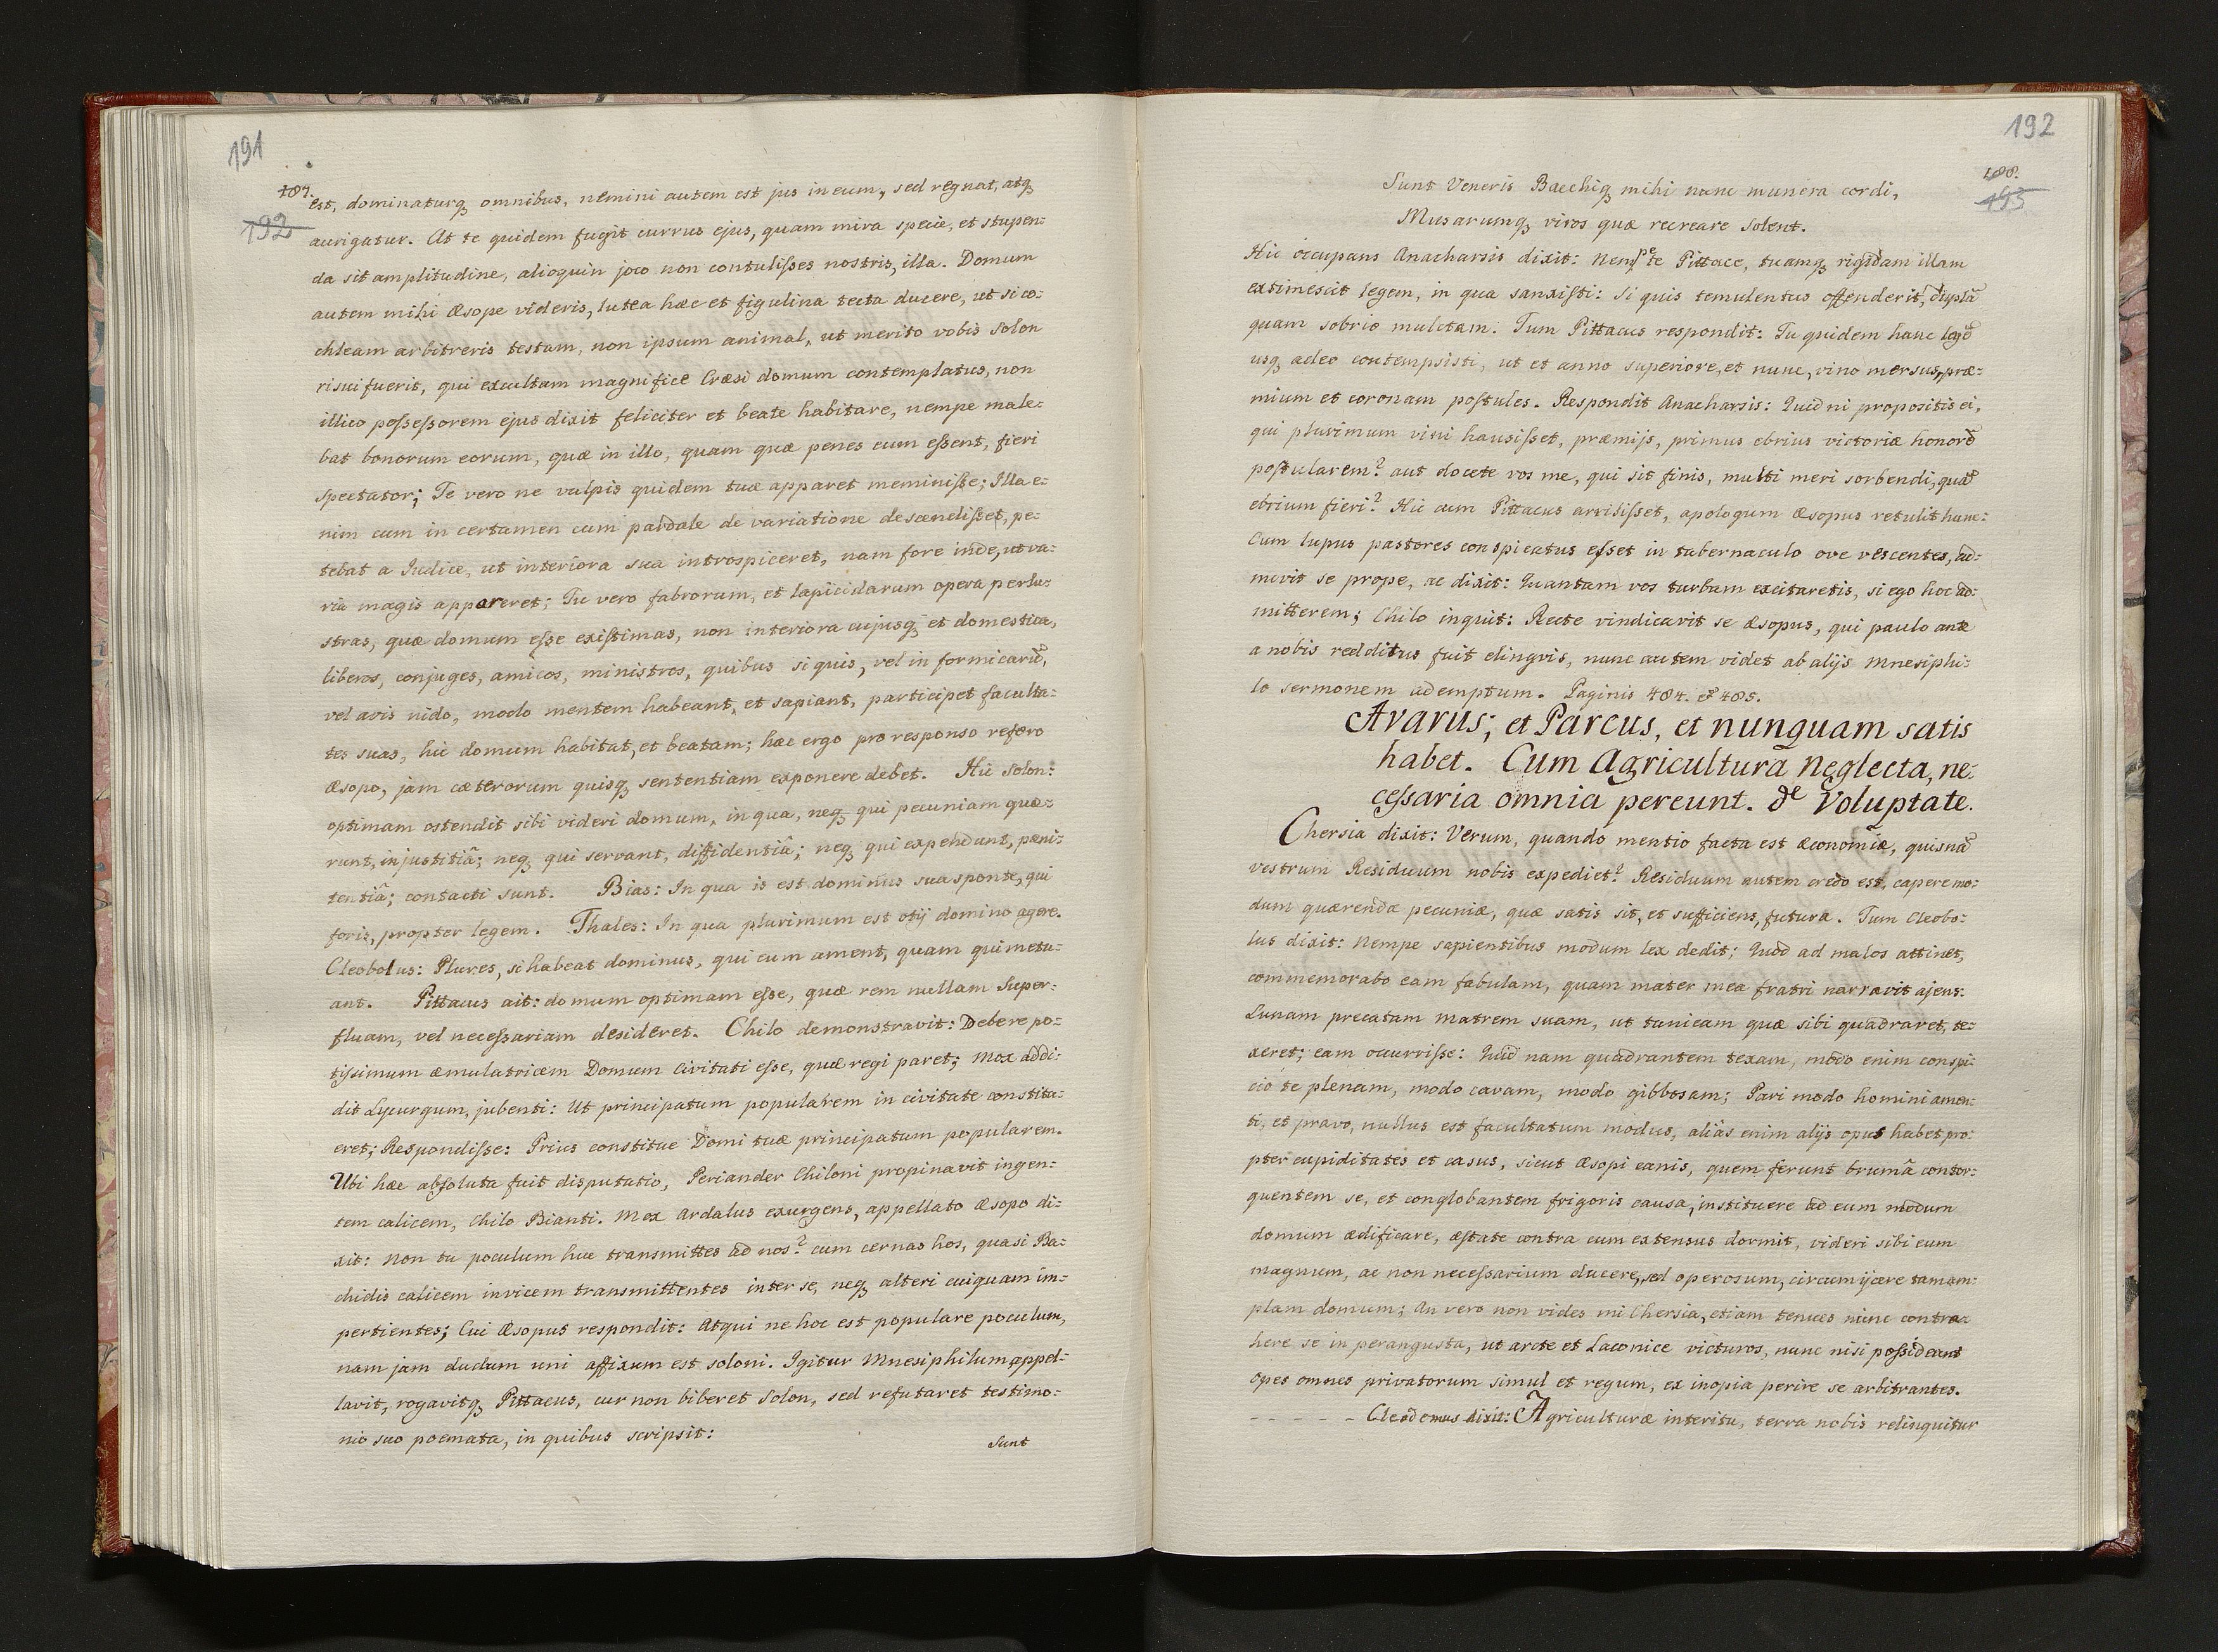 191
187.
192
est, dominaturq, omnibus, nemini autem est jus in eum, sed regnat, atq,
aurigatur. At te quidem fugit currus ejus, quam mira specie, et stupen=
da sit amplitudine, alioquin joco non contulisses nostris, illa. Domum
autem mihi Æsope videris, lutea hæc et figulina tecta ducere, ut si co=
chleam arbitreris testam, non ipsum animal, ut merito vobis Solon
risui fuerit, qui excultam magnifice Cræsi domum contemplatus, non
illico possessorem ejus dixit feliciter et beate habitare, nempe male=
bat bonorum eorum, quæ in illo, quam quæ penes eum essent, fieri
spectator; Te vero ne vulpis quidem tuæ apparet meminisse; Illa e=
nim cum in certamen cum pardale de variatione descendisset, pe=
tebat a Iudice, ut interiora sua introspiceret, nam fore inde, ut va=
ria magis appareret; Tu vero fabrorum, et lapicidarum opera perlu=
stras, quæ domum esse existimas, non interiora cujusq, et domestica,
liberos, conjuges, amicos, ministros, quibus si quis, vel in formicarũ,
vel avis nido, modo mentem habeant, et sapiant, participet faculta=
tes suas, hic domum habitat, et beatam; hæc ergo pro responso refero
Æsopo, jam cæterorum quisq, sententiam exponere debet. Hic Solon:
optimam ostendit sibi videri domum, in qua, neq, qui pecuniam quæ=
runt, injustitiâ; neq, qui servant, diffidentiâ; neq, qui expendunt, pæni=
tentiâ; contacti sunt. Bias: In qua is est dominus sua sponte, qui
foris, propter legem. Thales: In qua plurimum est otij domino agere.
Cleobolus: Plures, si habeat dominus, qui eum ament, quam qui metu=
ant. Pittacus ait: domum optimam esse, quæ rem nullam Super=
fluam, vel necessariam desideret. Chilo demonstravit: Debere po=
tissimum æmulatricem Domum Civitati esse, quæ regi paret; Mox addi=
dit Lycurgum, jubenti: Ut principatum popularem in civitate constitu=
eret; Respondisse: Prius constitue Domi tuæ principatum popularem.
Ubi hæc absoluta fuit disputatio, Periander Chiloni propinavit ingen=
tem calicem, Chilo Bianti. Mox Ardalus exurgens, appellato Æsopo di=
xit: Non tu poculum huc transmittes ad nos? cum cernas hos, quasi Ba=
chidis calicem invicem transmittentes inter se, neq, alteri cuiquam im=
pertientes; Cui Æsopus respondit: Atqui ne hoc est populare poculum,
nam jam dudum uni affixum est Soloni. Igitur Mnesiphilum appel=
lavit, rogavitq, Pittacus, cur non biberet Solon, sed refutaret testimo=
nio suo poemata, in quibus scripsit:
Sunt
192
188.
193
Sunt Veneris Bacchiq, mihi nunc munera cordi,
Musarumq, viros quæ recreare solent.
Hic occupans Anacharsis dixit: Nempe te Pittace, tuamq, rigidam illam
extimescit legem, in qua sanxisti: Si quis temulentus offenderit, duplã
quam sobrio mulctam: Tum Pittacus respondit: Tu quidem hanc legẽ
usq, adeo contempsisti, ut et anno superiore, et nunc, vino mersus, præ=
mium et coronam postules. Respondit Anacharsis: Quid ni propositis ei,
qui plurimum vini hausisset, præmijs, primus ebrius victoriæ honorẽ
postularem? aut docete vos me, qui sit finis, multi meri sorbendi, quã
ebrium fieri? Hic cum Pittacus arrisisset, apologum Æsopus retulit hunc:
Cum lupus pastores conspicatus esset in tabernaculo ove vescentes, ad=
movit se prope, ac dixit: Quantam vos turbam excitaretis, si ego hoc ad=
mitterem; Chilo inquit: Recte vindicavit se Æsopus, qui paulo ante
a nobis redditus fuit elingvis, nunc autem videt ab alijs Mnesiphi=
lo sermonem ademptum. Paginis 484. & 485.
Avarus, et Parcus, et nunquam satis
habet. Cum Agricultura Neglecta, ne=
cessaria omnia pereunt. de Voluptate.
Chersia dixit: Verum, quando mentio facta est æconomiæ, quisnã
vestrum Residuum nobis expediet? Residuum autem credo est, capere mo=
dum quærendæ pecuniæ, quæ satis sit, et sufficiens, futura. Tum Cleobo=
lus dixit: Nempe sapientibus modum lex dedit; Quod ad malos attinet,
commemorabo eam fabulam, quam mater mea fratri narravit ajens:
Lunam precatam matrem suam, ut tunicam quæ sibi quadraret, te=
xeret; eam occurrisse: Quid nam quadrantem texam, modo enim conspi=
cio te plenam, modo cavam, modo gibbosam; Pari modo homini amen=
ti, et pravo, nullus est facultatum modus, aliàs enim alijs opus habet pro=
pter cupiditates et casus, sicut Æsopi canis, quem ferunt brumâ contor=
quentem se, et conglobantem frigoris causa, instituere ad eum modum
domum ædificare, æstate contra cum extensus dormit, videri sibi eum
magnum, ac non necessarium ducere, sed operosum, circumijcere tam am=
plam domum; An vero non vides mi Chersia, etiam tenues nunc contra=
here se in perangusta, ut arcte et Laconice victuros, nunc nisi possideant
opes omnes privatorum simul et regum, ex inopia perire se arbitrantes.
- - - - - Cleodemus dixit: Agriculturæ interitu, terra nobis relinquitur